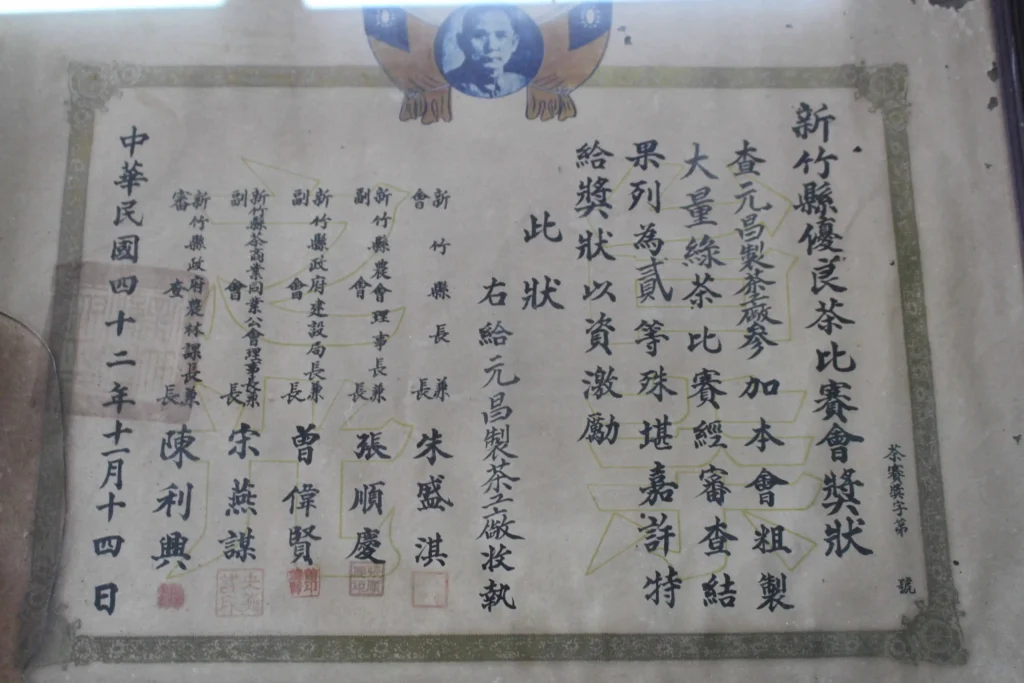 茶賽獎字第　號
新竹縣優良茶比賽會獎狀
查元昌製茶廠參加本會粗製
大量綠茶比賽經審查結
果列為貳等殊堪嘉許特
給獎狀以資激勵
此狀
右給元昌製茶工廠收執
新竹縣長兼
會長朱盛淇
新竹縣農會理事長兼
副會長張順慶
新竹縣政府建設局長兼
副會長曾偉賢
新竹縣茶商業同業公會理事長兼
副會長宗燕謀
新竹縣政府農林課長兼
審查長陳利興
中華民國四十二年十一月十四日